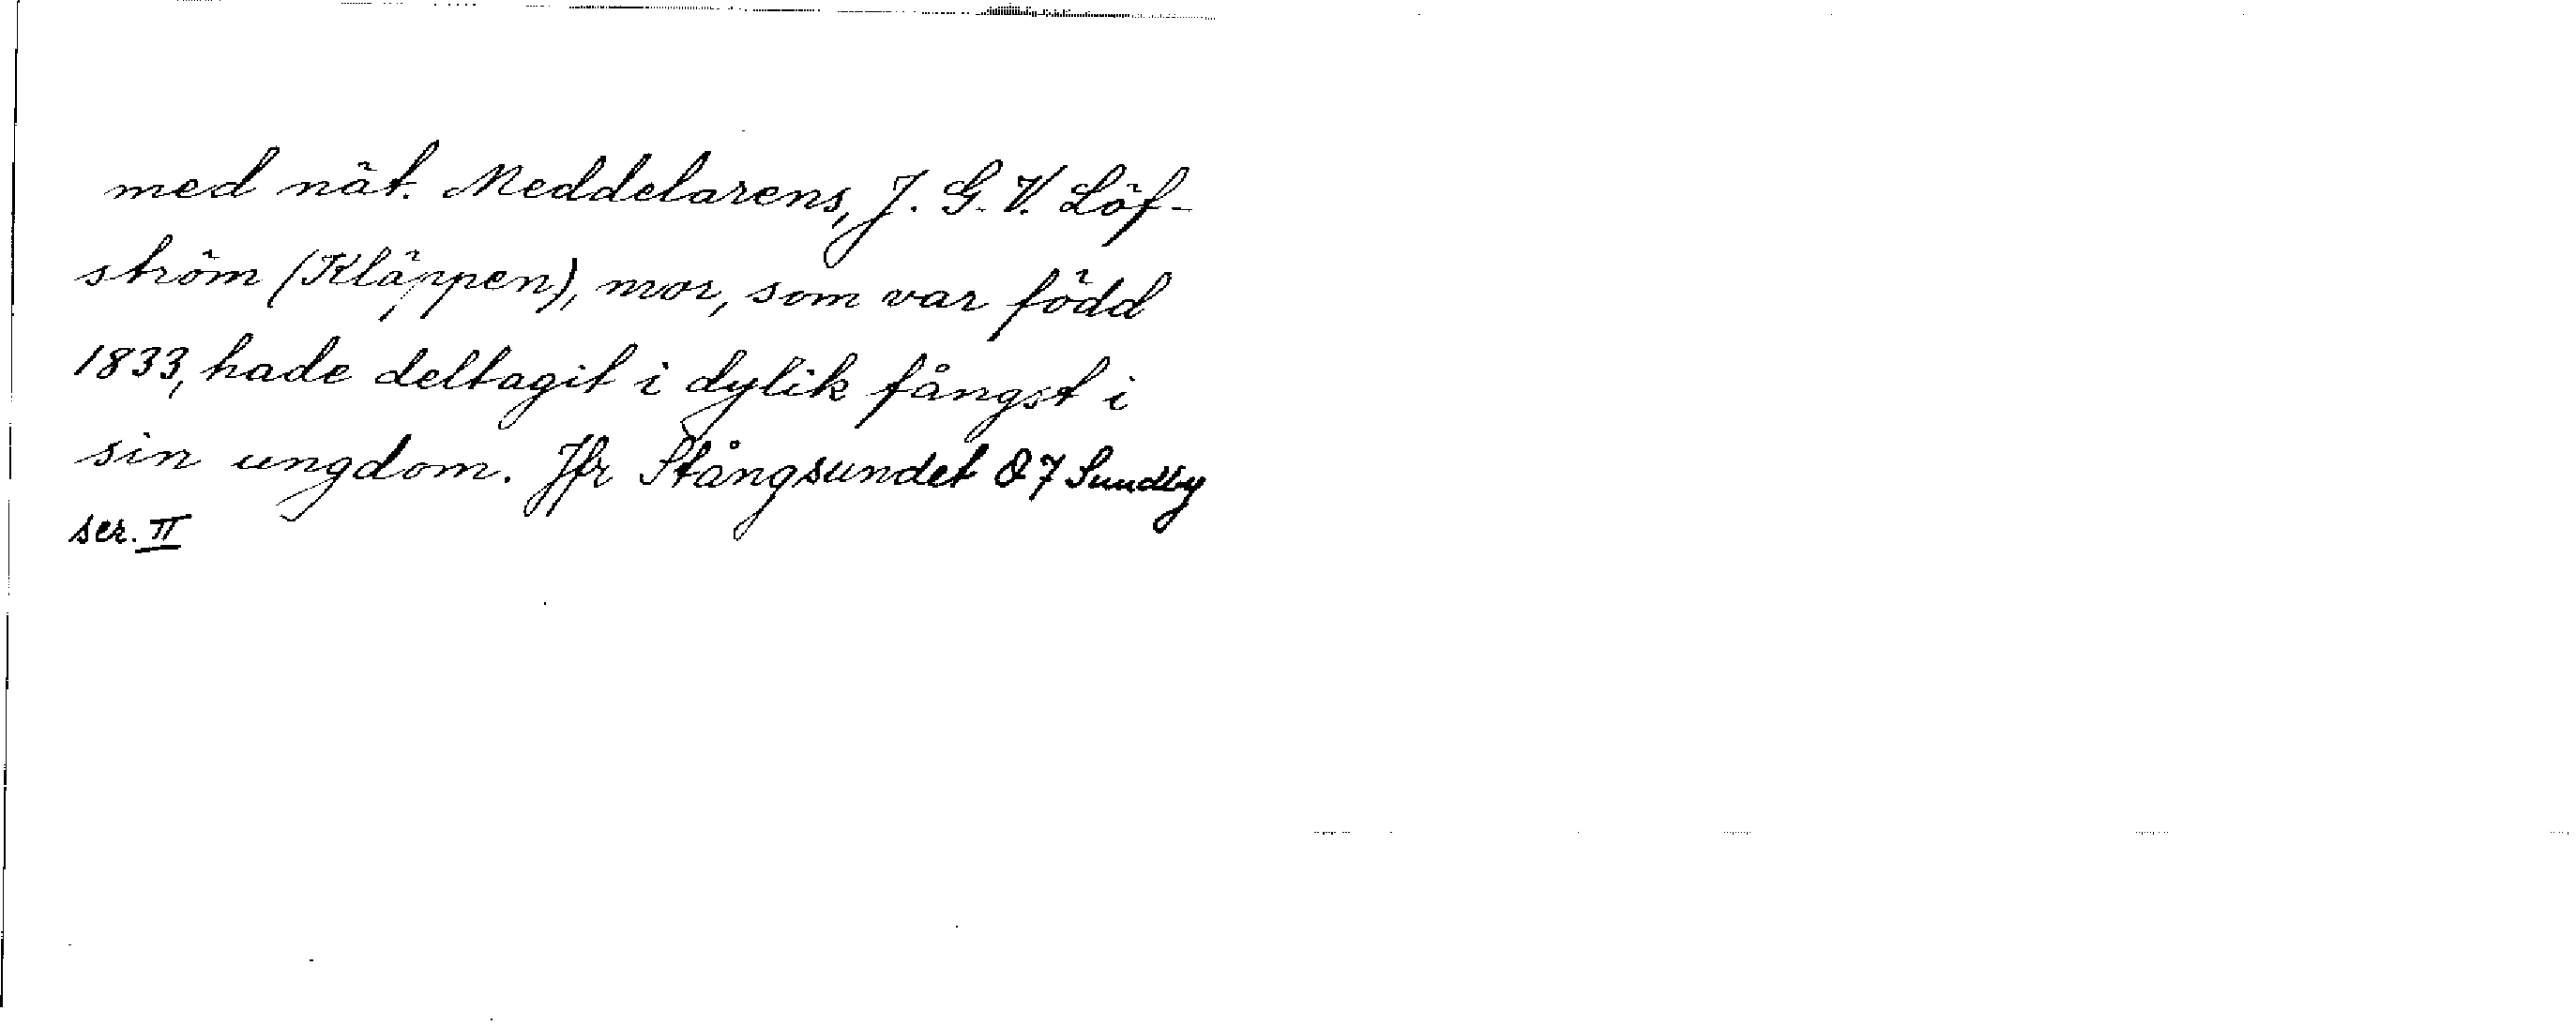 med nät. Meddelarens, J. G. V. Löf-
ström (Kläppen), mor, som var född
1833, hade deltagit i dylik fångst i
sin ungdom. Jfr Stångsundet Ö 7 Sundby
ser. II